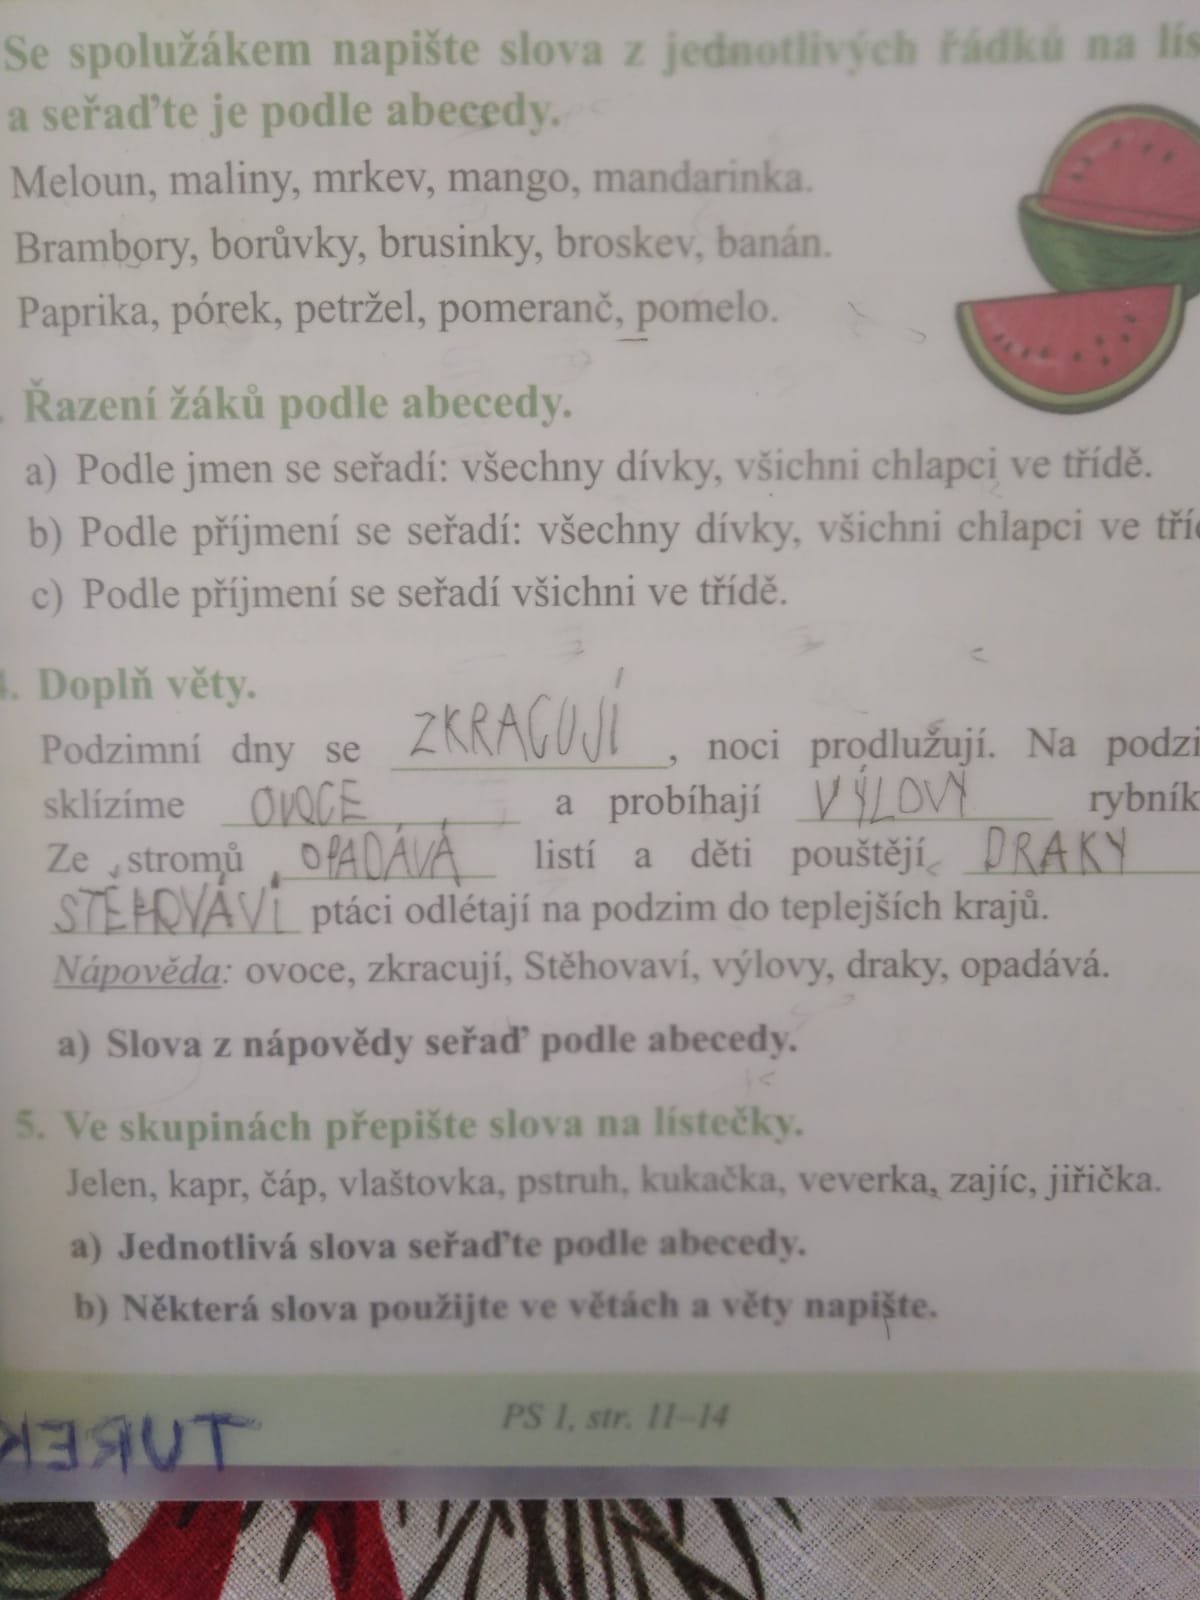 Se spolužákem napište slova z jednotlivých řádků na lís
a seřaďte je podle abecedy.
Meloun, maliny, mrkev, mango, mandarinka.
Brambory, borůvky, brusinky, broskev, banán.
Paprika, pórek, petržel, pomeranč, pomelo.
. Řazení žáků podle abecedy.
a) Podle jmen se seřadí: všechny dívky, všichni chlapci ve třídě.
b) Podle příjmení se seřadí: všechny dívky, všichni chlapci ve tříd
c) Podle příjmení se seřadí všichni ve třídě.
4. Doplň věty.
Podzimní dny se ZKRACUJÍ, noci prodlužují. Na podzi
sklízíme OVOCE a probíhají VÝLOVY rybník
Ze stromů OPADÁVÁ listí a děti pouštějí DRAKY
STEHOVÁVÍ ptáci odlétají na podzim do teplejších krajů.
Nápověda: ovoce, zkracují, Stěhovaví, výlovy, draky, opadává.
a) Slova z nápovědy seřaď podle abecedy.
5. Ve skupinách přepište slova na lístečky.
Jelen, kapr, čáp, vlaštovka, pstruh, kukačka, veverka, zajíc, jiřička.
a) Jednotlivá slova seřaďte podle abecedy.
b) Některá slova použijte ve větách a věty napište.
PS 1, str. 11–14
TUREK